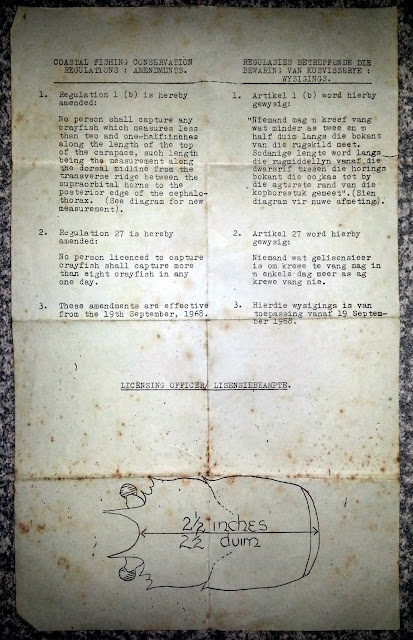 COASTAL FISHING CONSERVATION
REGULATIONS : AMENDMENTS.
1. Regulation 1 (b) is hereby
amended:
No person shall capture any
crayfish which measures less
than two and one-half:inches
along the length of the top
of the carapace, such length
being the measurement along
the dorsal midline from the
transverse ridge between the
supraorbital horns to the
posterior edge of the cephalo-
thorax. (See diagram for new
measurement).
2. Regulation 27 is hereby
amended:
No person licenced to capture
crayfish shall capture more
than eight crayfish in any
one day.
3. These amendments are effective
from the 19th September, 1968.
REGULASIES BETREFFENDE DIE
BEWARING VAN KUSVISSERYE :
WYSIGINGS.
1. Artikel 1 (b) word hierby
gewysig:
"Niemand mag n kreef vang
wat minder as twee en n
half duim langs die bokant
van die rugskild meet.
Sodanige lengte word langs
die rugmiddellyn vanaf die
dwarsrif tussen die horings
bokant die oogkas tot by
die agterste rand van die
kopborsstuk gemeet".(Sien
diagram vir nuwe afmeting).
2. Artikel 27 word hierby
gewysig:
Niemand wat gelisensieer
is om krewe te vang mag in
n enkele dag meer as ag
krewe vang nie.
3. Hierdie wysigings is van
toepassing vanaf 19 Septem-
ber 1968.
LICENSING OFFICER/ LISENSIEBEAMPTE.
2½ inches
2½ duim